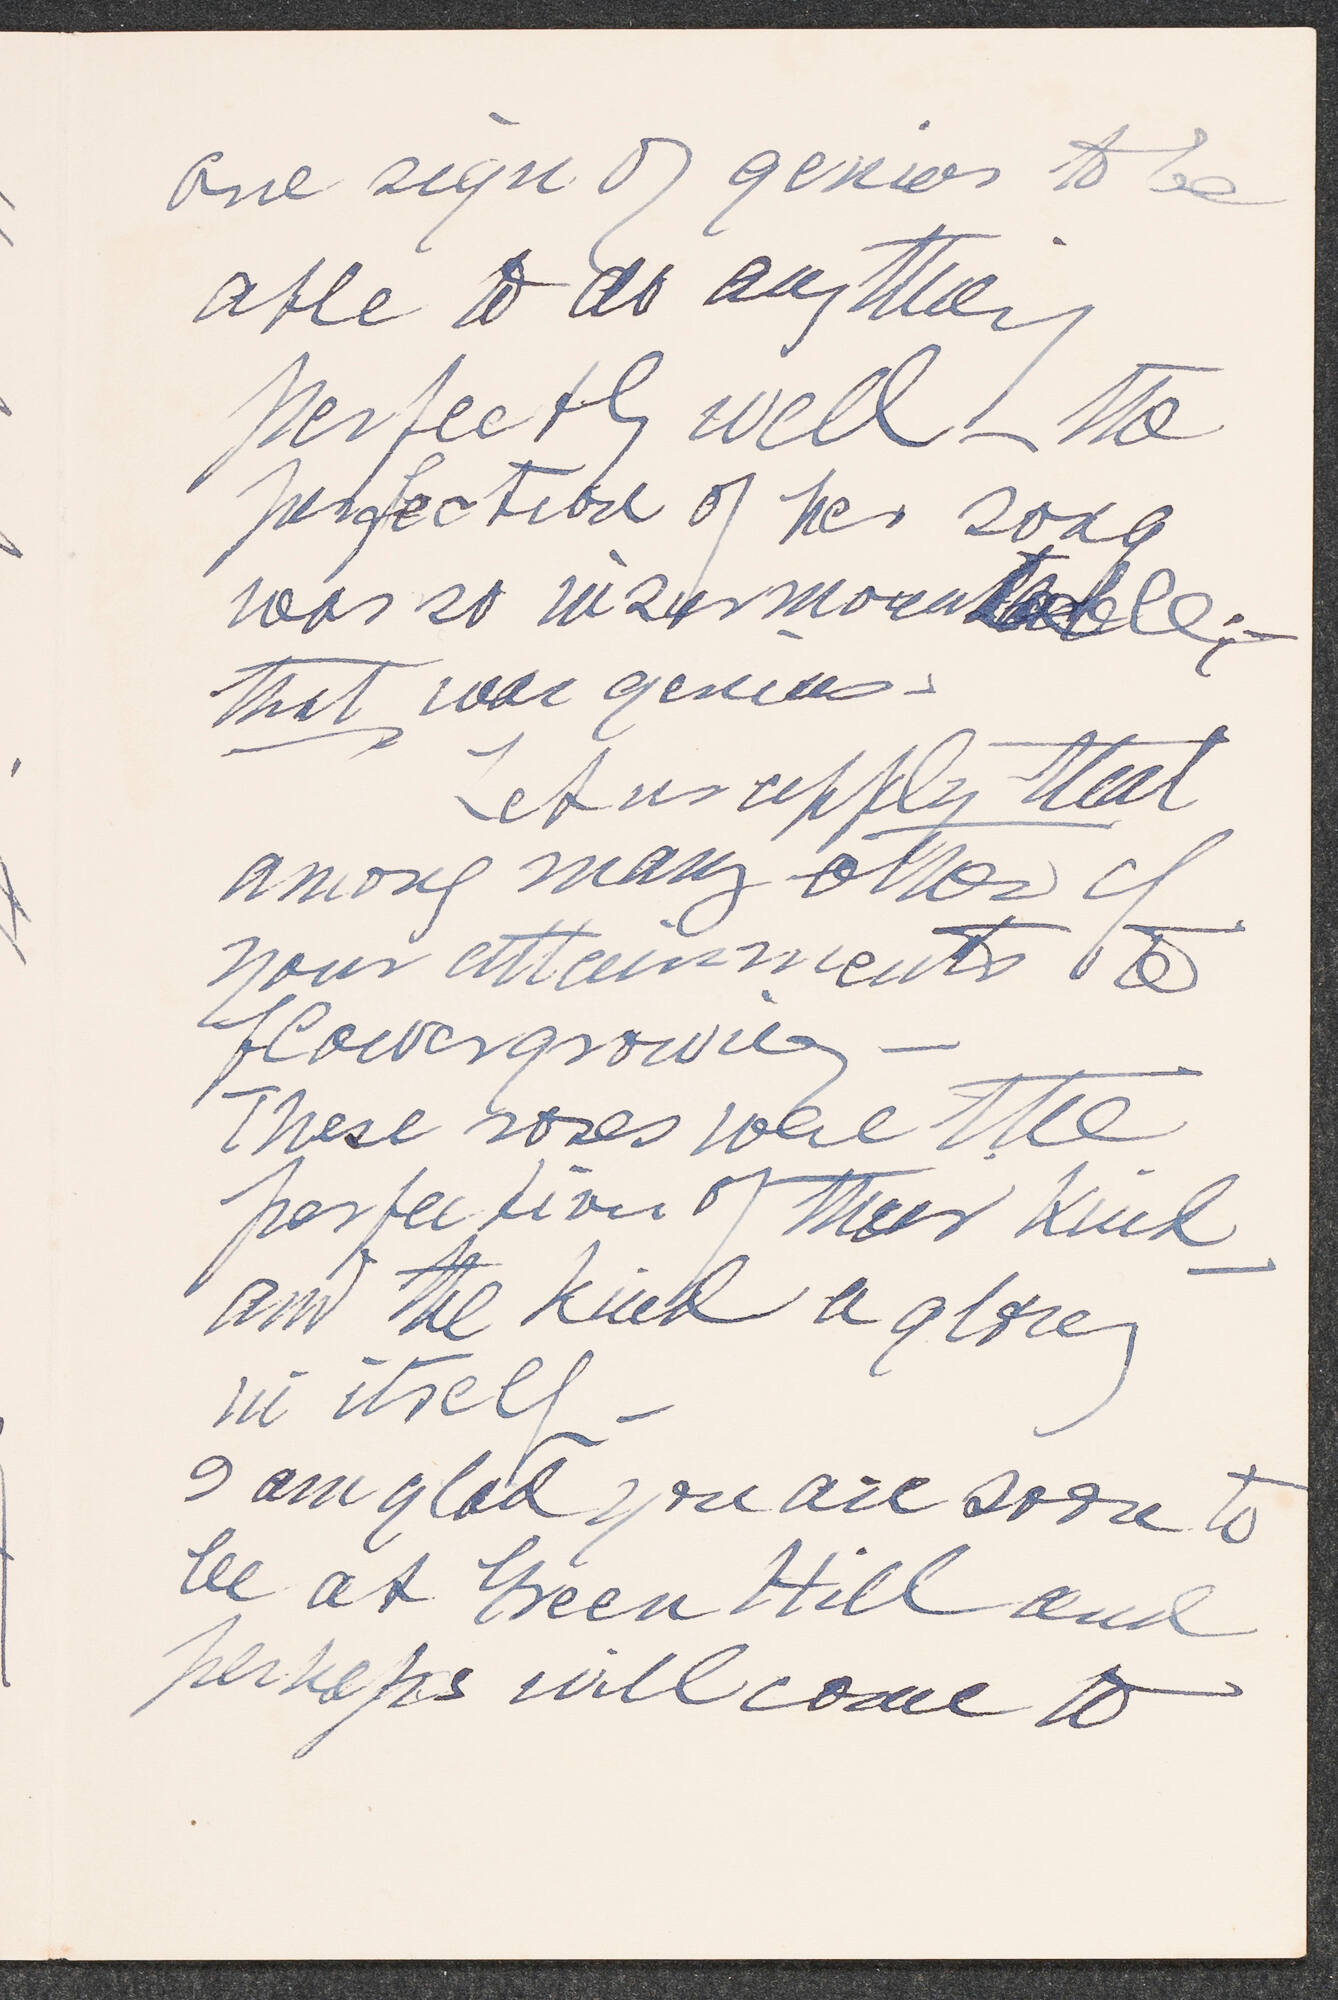 one sign of genius to be
able to do anything
perfectly well — the
perfection of her song
was so insurmountable; —
that was genius.
Let us apply that
among many other of
your attainments to
flowergrowing —
These roses were the
perfection of their kind —
and the kind a glory
in itself —
I am glad you are soon to
be at Green Hill and
perhaps will come to